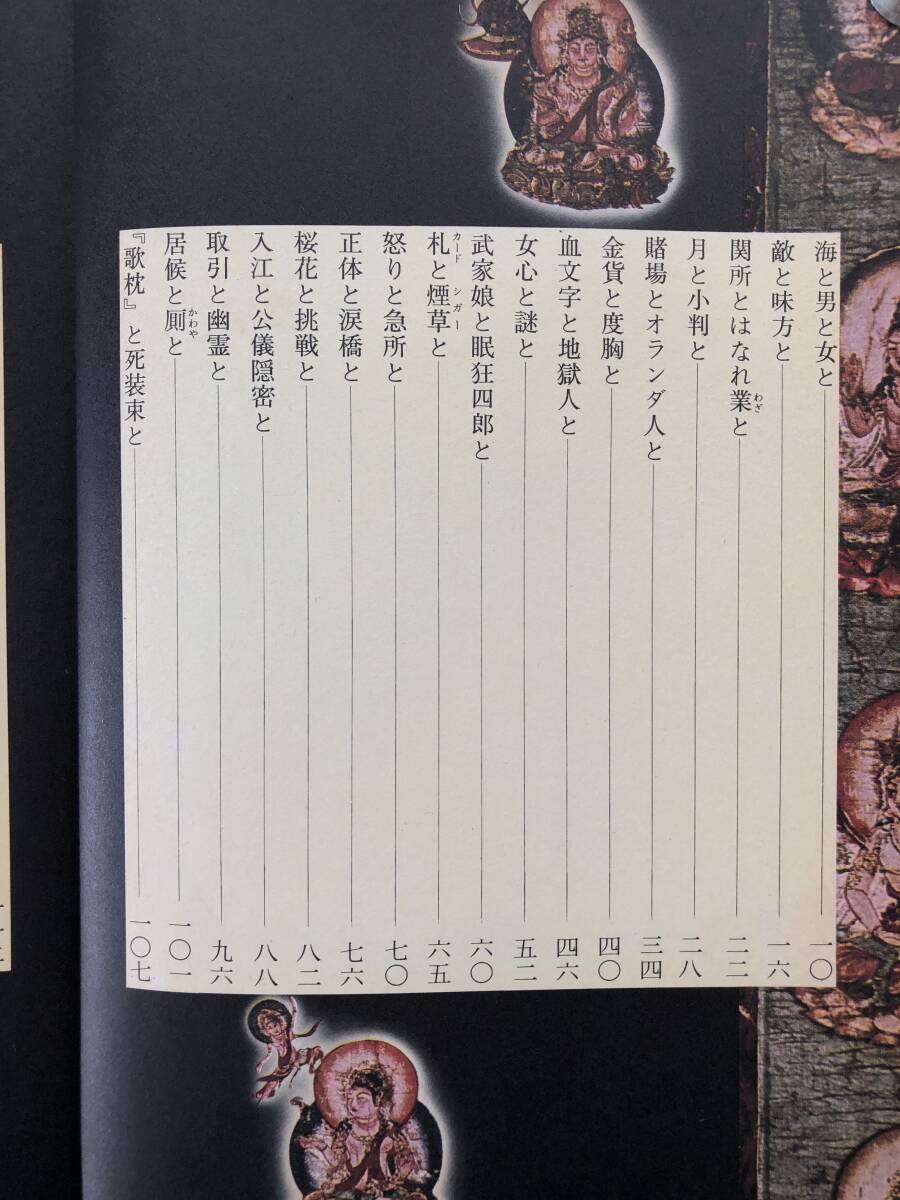 海と男と女と 一〇
敵と味方と 一六
関所とはなれ業と 二二
月と小判と 二八
賭場とオランダ人と 三四
金貨と度胸と 四〇
血文字と地獄人と 四六
女心と謎と 五二
武家娘と眠狂四郎と 六〇
札と煙草と 六五
怒りと急所と 七〇
正体と涙橋と 七六
桜花と挑戦と 八二
入江と公儀隠密と 八八
取引と幽霊と 九六
居候と厠と 一〇一
『歌枕』と死装束と 一〇七